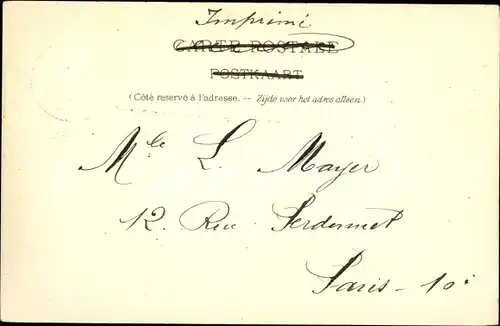 Imprimé
CARTE POSTALE
POSTKAART
(Côté reservé à l'adresse. — Zijde voor het adres alleen.)
Mle L. Mayer
12. Rue
Paris - 10e